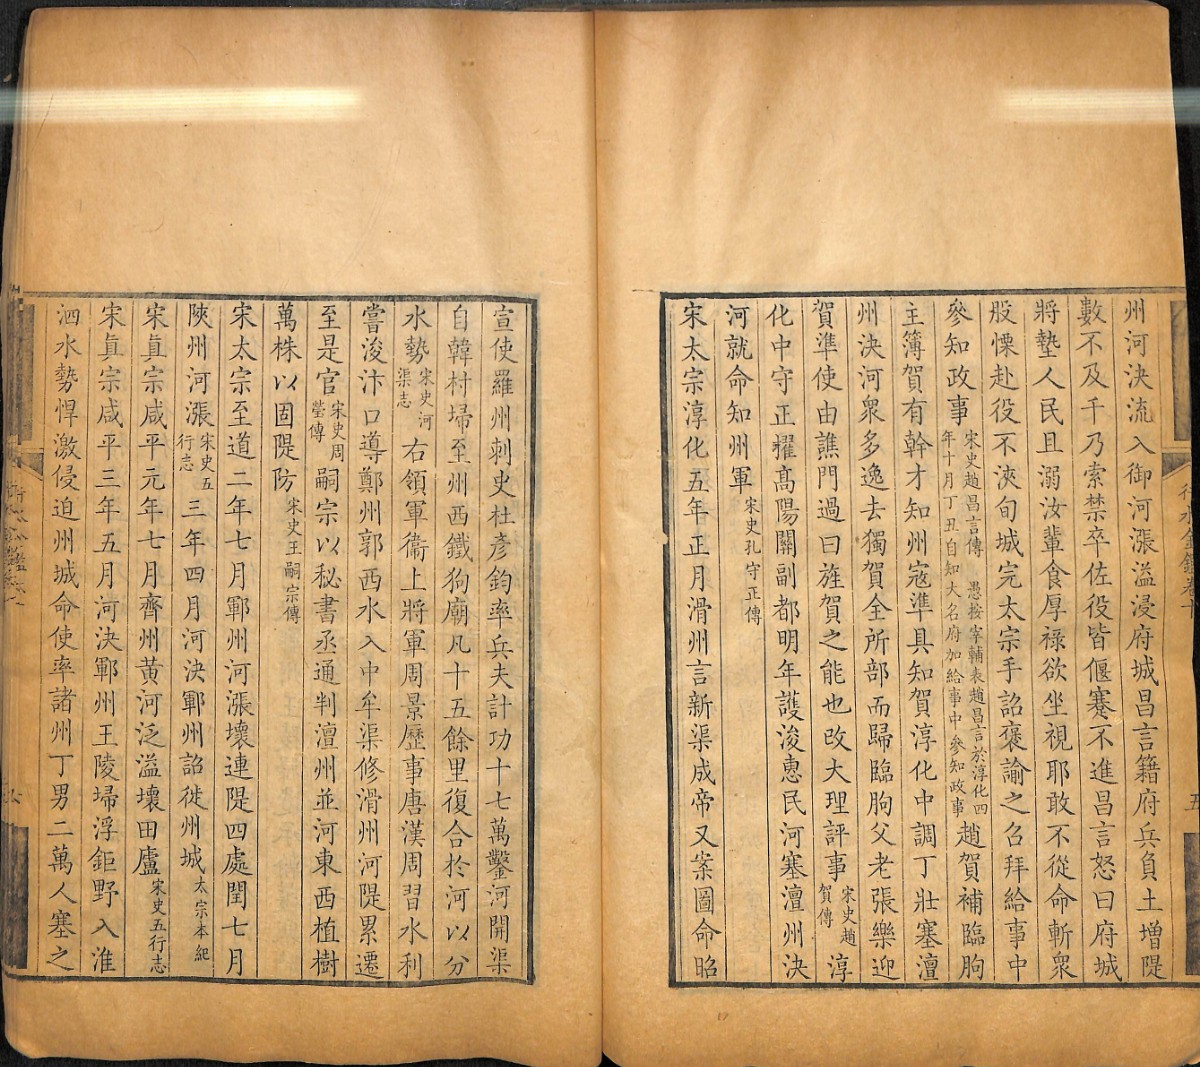 州河決流入御河漲溢浸府城昌言籍府兵負土增隄
數不及千乃索禁卒佐役皆偃蹇不進昌言怒曰府城
將墊人民且溺汝輩食厚祿欲坐視耶敢不從命斬衆
股慄赴役不浹旬城完太宗手詔褒諭之召拜給事中
參知政事宋史趙昌言傳 愚按宰輔表趙昌言於淳化四年十月丁丑自知大名府加給事中參知政事趙賀補臨朐
主簿賀有幹才知州寇準具知賀淳化中調丁壯塞澶
州決河衆多逸去獨賀全所部而歸臨朐父老張樂迎
賀準使由譙門過曰旌賀之能也改大理評事宋史趙賀傳淳
化中守正擢高陽關副都明年護浚惠民河塞澶州決
河就命知州軍宋史孔守正傳
宋太宗淳化五年正月滑州言新渠成帝又案圖命昭
宣使羅州刺史杜彥鈞率兵夫計功十七萬鑿河開渠
自韓村埽至州西鐵狗廟凡十五餘里復合於河以分
水勢宋史河渠志右領軍衞上將軍周景歷事唐漢周習水利
嘗浚汴口導鄭州郭西水入中牟渠修滑州河隄累遷
至是官宋史周瑩傳嗣宗以秘書丞通判澶州並河東西植樹
萬株以固隄防宋史王嗣宗傳
宋太宗至道二年七月鄆州河漲壞連隄四處閏七月
陝州河漲宋史五行志三年四月河決鄆州詔徙州城太宗本紀
宋眞宗咸平元年七月齊州黃河泛溢壞田廬宋史五行志
宋眞宗咸平三年五月河決鄆州王陵埽浮鉅野入淮
泗水勢悍激侵迫州城命使率諸州丁男二萬人塞之